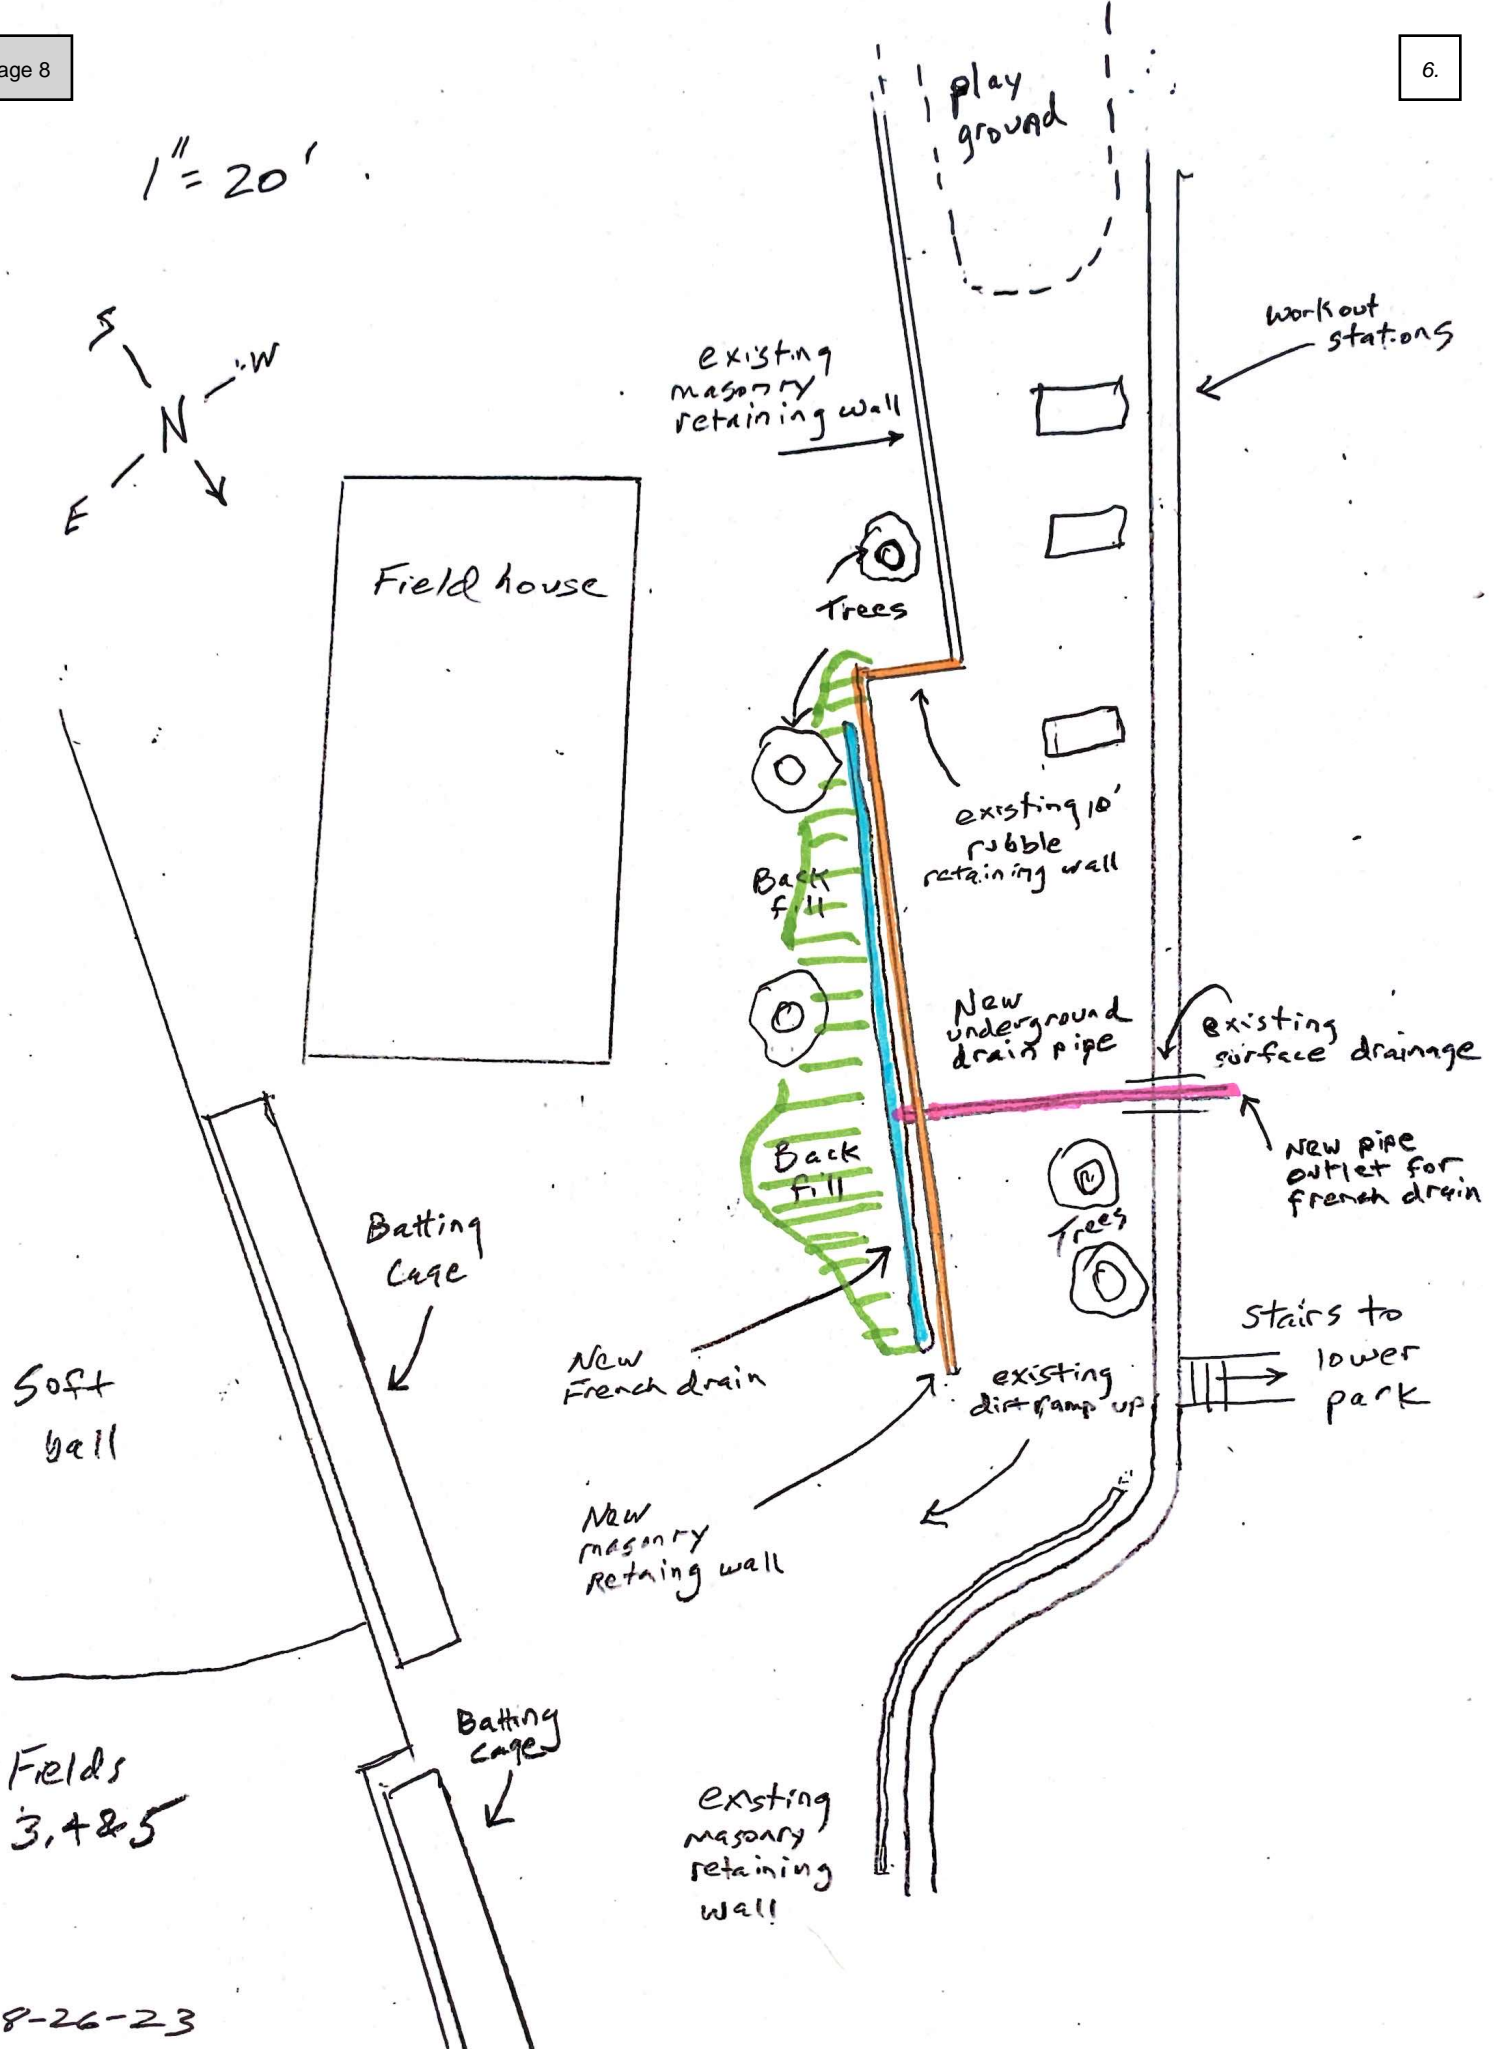 age 8
6.
1" = 20'
play
ground
S
W
N
E
workout
stations
existing
masonry
retaining wall
Field house
Trees
existing 10'
rubble
retaining wall
Back
fill
New
underground
drain pipe
existing
surface drainage
New pipe
outlet for
french drain
Back
fill
Trees
Batting
Cage
Stairs to
lower
park
New
French drain
existing
dirt ramp up
Soft
ball
New
masonry
Retaing wall
Batting
cage
Fields
3, 4 & 5
existing
masonry
retaining
wall
8-26-23